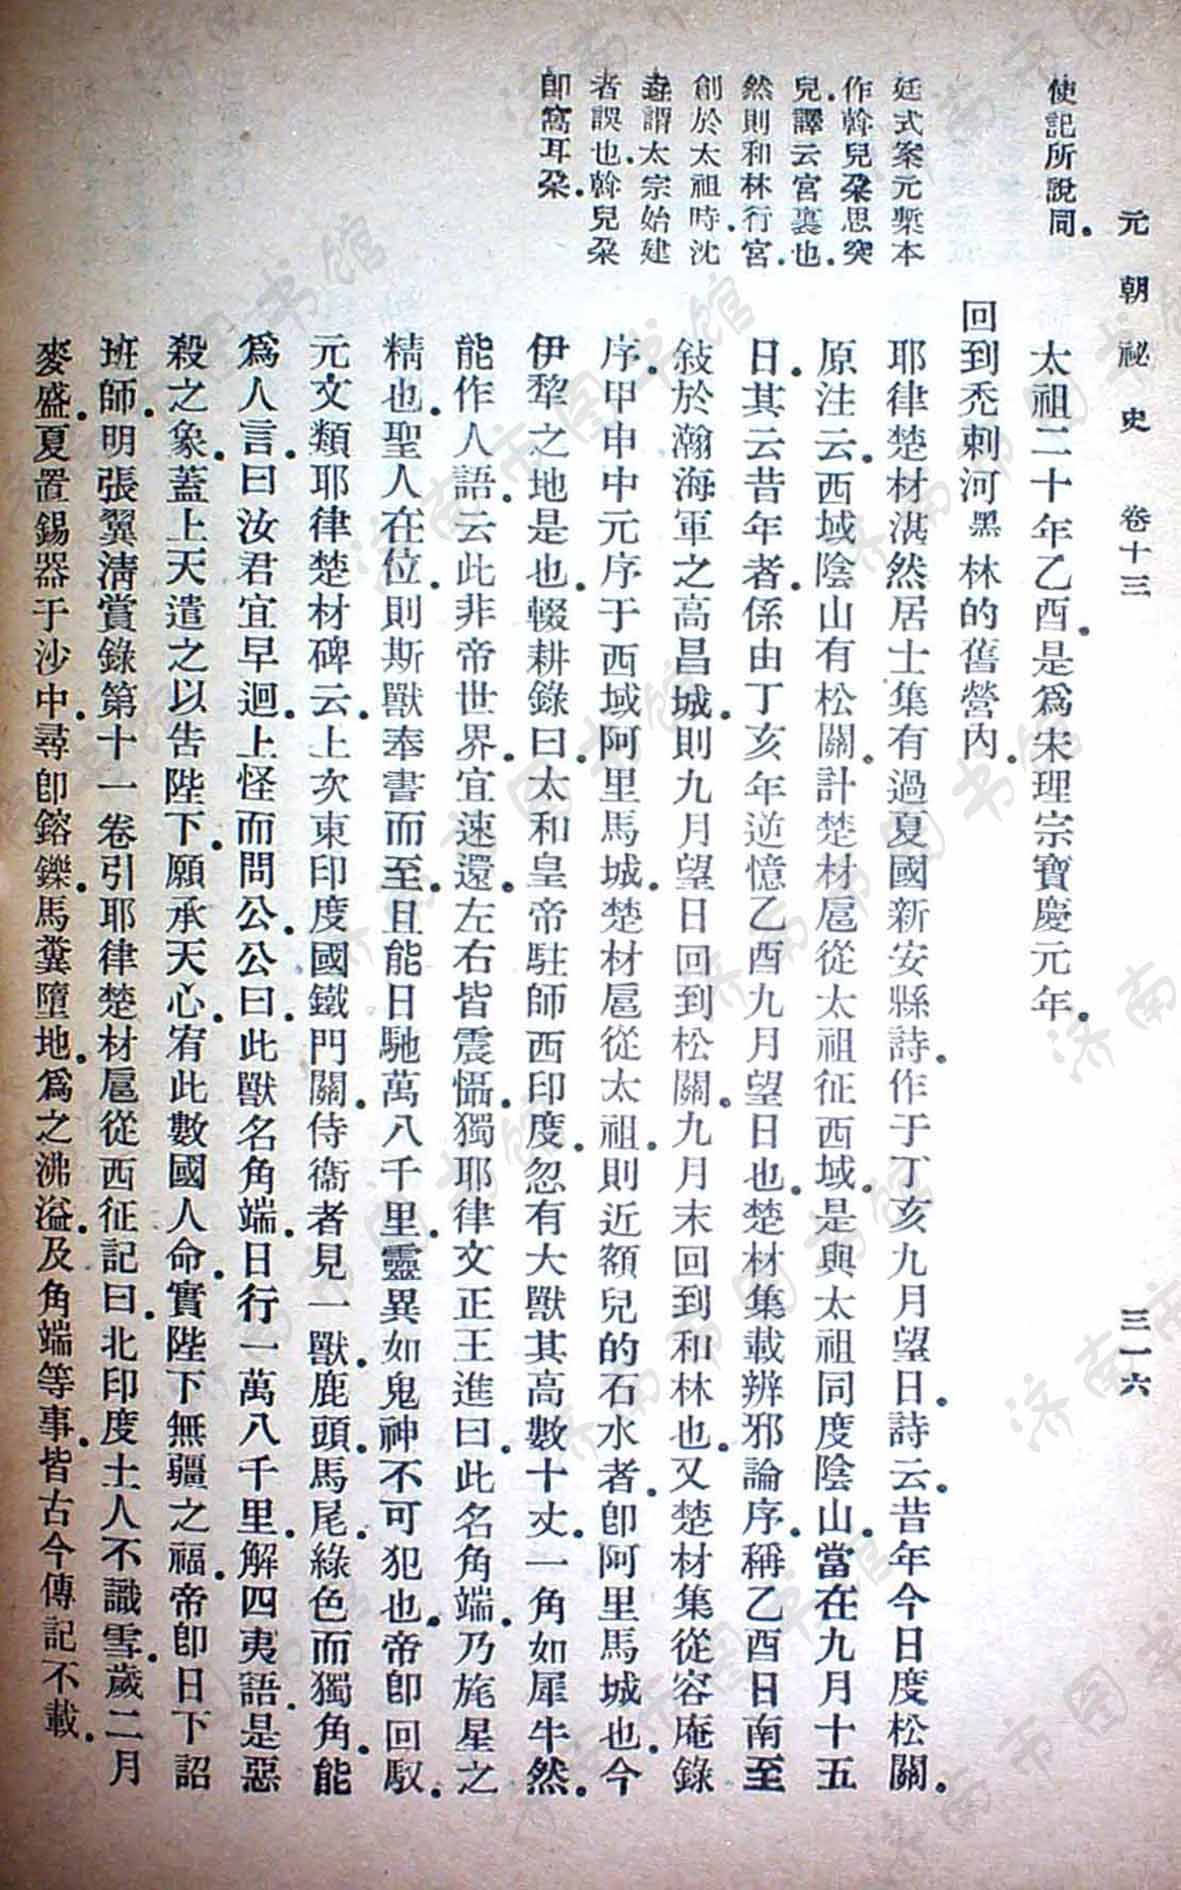 元朝祕史 卷十三 三一六
使記所說同。
廷式案元槧本
作斡兒朶思突
兒譯云宮裏也。
然則和林行宮。
創於太祖時沈
垚謂太宗始建
者誤也。斡兒朶
卽窩耳朶。
太祖二十年乙酉。是爲宋理宗寶慶元年。
回到禿剌河黑林的舊營內。
耶律楚材湛然居士集有過夏國新安縣詩。作于丁亥九月望日。詩云。昔年今日度松關。
原注云。西域陰山有松關。計楚材扈從太祖征西域。是與太祖同度陰山。當在九月十五
日。其云昔年者。係由丁亥年逆憶乙酉九月望日也。楚材集載辨邪論序。稱乙酉日南至
敍於瀚海軍之高昌城。則九月望日回到松關。九月末回到和林也。又楚材集從容庵錄
序。甲申中元序于西域阿里馬城。楚材扈從太祖。則近額兒的石水者。卽阿里馬城也。今
伊犂之地是也。輟耕錄曰。太和皇帝駐師西印度。忽有大獸其高數十丈。一角如犀牛然。
能作人語。云此非帝世界。宜速還。左右皆震懾。獨耶律文正王進曰。此名角端。乃旄星之
精也。聖人在位。則斯獸奉書而至。且能日馳萬八千里。靈異如鬼神不可犯也。帝卽回馭。
元文類耶律楚材碑云。上次東印度國鐵門關。侍衞者見一獸。鹿頭。馬尾。綠色而獨角。能
爲人言。曰汝君宜早迴。上怪而問公。公曰。此獸名角端。日行一萬八千里。解四夷語。是惡
殺之象。蓋上天遣之以告陛下。願承天心。宥此數國人命。實陛下無疆之福。帝卽日下詔
班師。明張翼淸賞錄第十一卷引耶律楚材扈從西征記曰。北印度土人不識雪。歲二月
麥盛。夏置錫器于沙中。尋卽鎔鑠。馬糞墮地。爲之沸溢。及角端等事。皆古今傳記不載。